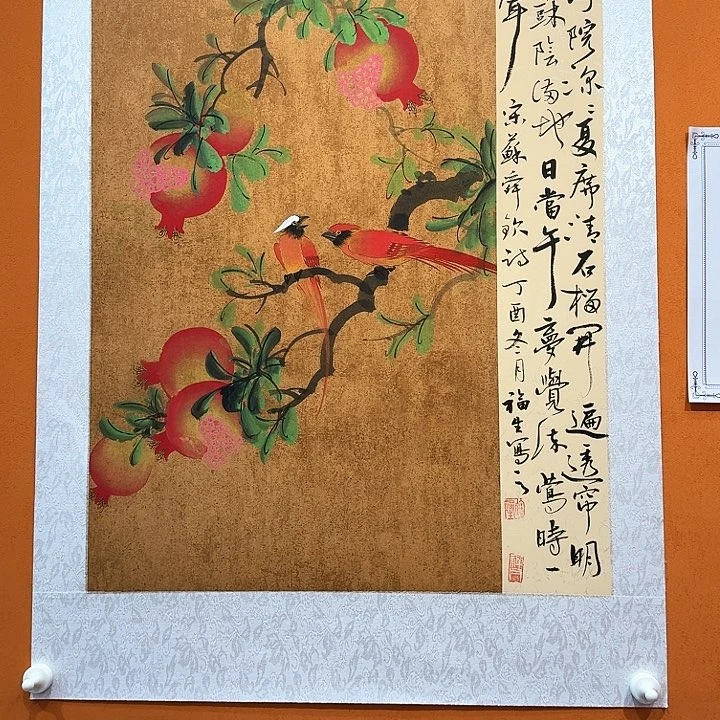 院深〻夏席清石榴開遍透帘明
樹陰滿地日當午夢覺流鶯時一
聲
宋蘇舜欽詩丁酉冬月福生寫之